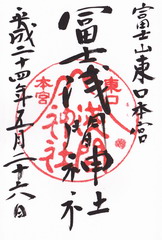 富士山東口本宮
冨士浅間神社
平成二十四年五月二十六日
東口
本宮